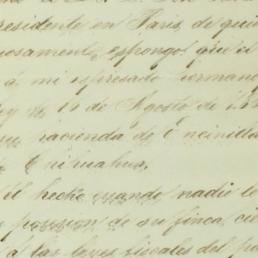 residente en Paris, de quien
espongo que el
á mi espresado hermano
ley de 16 de Agosto de 18
su hacienda de Encinillas
Chihuahua,
el hecho cuando nadie lo
posesion de su finca, cie
á las leyes fiscales del pa